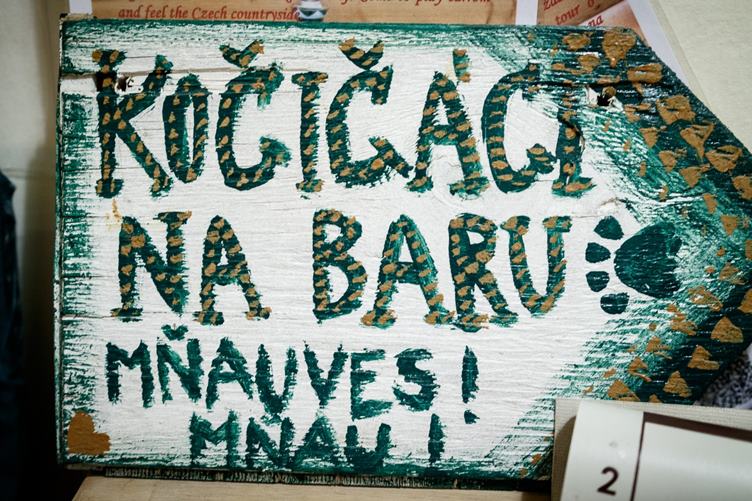 and feel the Czech countryside
tour of
na
KOČIČÁCI
NA BARU
MŇAUVES!
MŇAU!
2